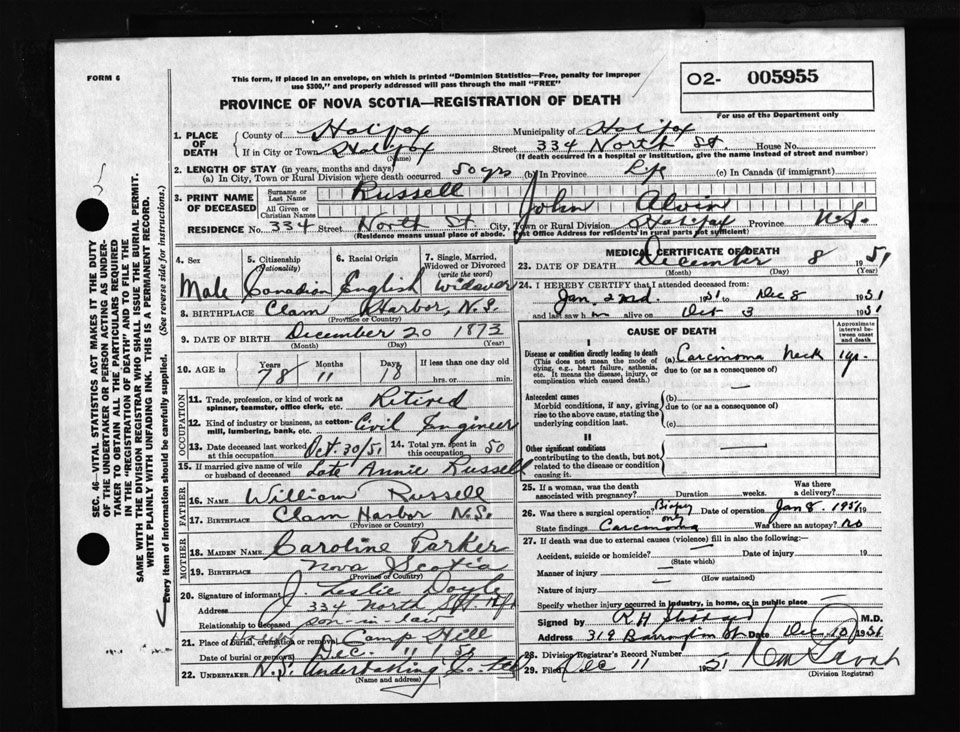 FORM 6
This form, if placed in an envelope, on which is printed "Dominion Statistics—Free, penalty for improper
use $300," and properly addressed will pass through the mail "FREE"
O2- 005955
For use of the Department only
PROVINCE OF NOVA SCOTIA—REGISTRATION OF DEATH
SEC. 46—VITAL STATISTICS ACT MAKES IT THE DUTY
OF THE UNDERTAKER OR PERSON ACTING AS UNDER-
TAKER TO OBTAIN ALL THE PARTICULARS REQUIRED
IN THE "REGISTRATION OF DEATH" AND TO FILE THE
SAME WITH THE DIVISION REGISTRAR WHO SHALL ISSUE THE BURIAL PERMIT.
WRITE PLAINLY WITH UNFADING INK. THIS IS A PERMANENT RECORD.
Every item of information should be carefully supplied. (See reverse side for instructions.)
1. PLACE OF DEATH
County of Halifax Municipality of Halifax
If in City or Town Halifax Street 334 North St. House No.
(Name) (If death occurred in a hospital or institution, give the name instead of street and number)
2. LENGTH OF STAY (in years, months and days)
(a) In City, Town or Rural Division where death occurred 50 yrs (b) In Province Life (c) In Canada (if immigrant)
3. PRINT NAME OF DECEASED
Surname or Last Name Russell
All Given or Christian Names John Alvin
RESIDENCE No. 334 Street North St City, Town or Rural Division Halifax Province N.S.
(Residence means usual place of abode. Post Office Address for residents in rural parts not sufficient)
4. Sex 5. Citizenship (Nationality) 6. Racial Origin 7. Single, Married, Widowed or Divorced (write the word)
Male Canadian English Widower
8. BIRTHPLACE Clam Harbor, N.S.
(Province or Country)
9. DATE OF BIRTH December 20 1873
(Month) (Day) (Year)
10. AGE in Years Months Days If less than one day old
78 11 18 hrs. or min.
OCCUPATION
11. Trade, profession, or kind of work as spinner, teamster, office clerk, etc. Retired
12. Kind of industry or business, as cotton-mill, lumbering, bank, etc. Civil Engineer
13. Date deceased last worked at this occupation Oct. 30/51 14. Total yrs. spent in this occupation 50
15. If married give name of wife or husband of deceased Late Annie Russell
FATHER
16. NAME William Russell
17. BIRTHPLACE Clam Harbor N.S.
(Province or Country)
MOTHER
18. MAIDEN NAME Caroline Parker
19. BIRTHPLACE Nova Scotia
(Province or Country)
20. Signature of informant J. Leslie Doyle
Address 334 North St Hfx
Relationship to deceased son-in-law
21. Place of burial, cremation or removal Camp Hill
Date of burial or removal Dec. 11
22. UNDERTAKER N.S. Undertaking Co. Ltd
(Name and address)
MEDICAL CERTIFICATE OF DEATH
23. DATE OF DEATH December 8 1951
(Month) (Day) (Year)
24. I HEREBY CERTIFY that I attended deceased from:
Jan. 2nd. 1951 to Dec 8 1951
and last saw h m alive on 3 1951
CAUSE OF DEATH
Approximate interval between onset and death
I
Disease or condition directly leading to death
(This does not mean the mode of dying, e.g., heart failure, asthenia, etc. It means the disease, injury, or complication which caused death.
(a) Carcinoma neck 1 yr.
due to (or as a consequence of)
Antecedent causes
Morbid conditions, if any, giving rise to the above cause, stating the underlying condition last.
(b)
due to (or as a consequence of)
(c)
II
Other significant conditions
contributing to the death, but not related to the disease or condition causing it.
25. If a woman, was the death associated with pregnancy? Duration weeks. Was there a delivery?
26. Was there a surgical operation? Biopsy only Date of operation Jan 8. 1951 19
State findings Carcinoma Was there an autopsy? no
27. If death was due to external causes (violence) fill in also the following:—
Accident, suicide or homicide? Date of injury 19
(State which)
Manner of injury
(How sustained)
Nature of injury
Specify whether injury occurred in industry, in home, or in public place
Signed by R H M.D.
Address 319 Barrington St Date Dec. 10 1951
28. Division Registrar's Record Number
29. Filed Dec 11 1951
(Division Registrar)